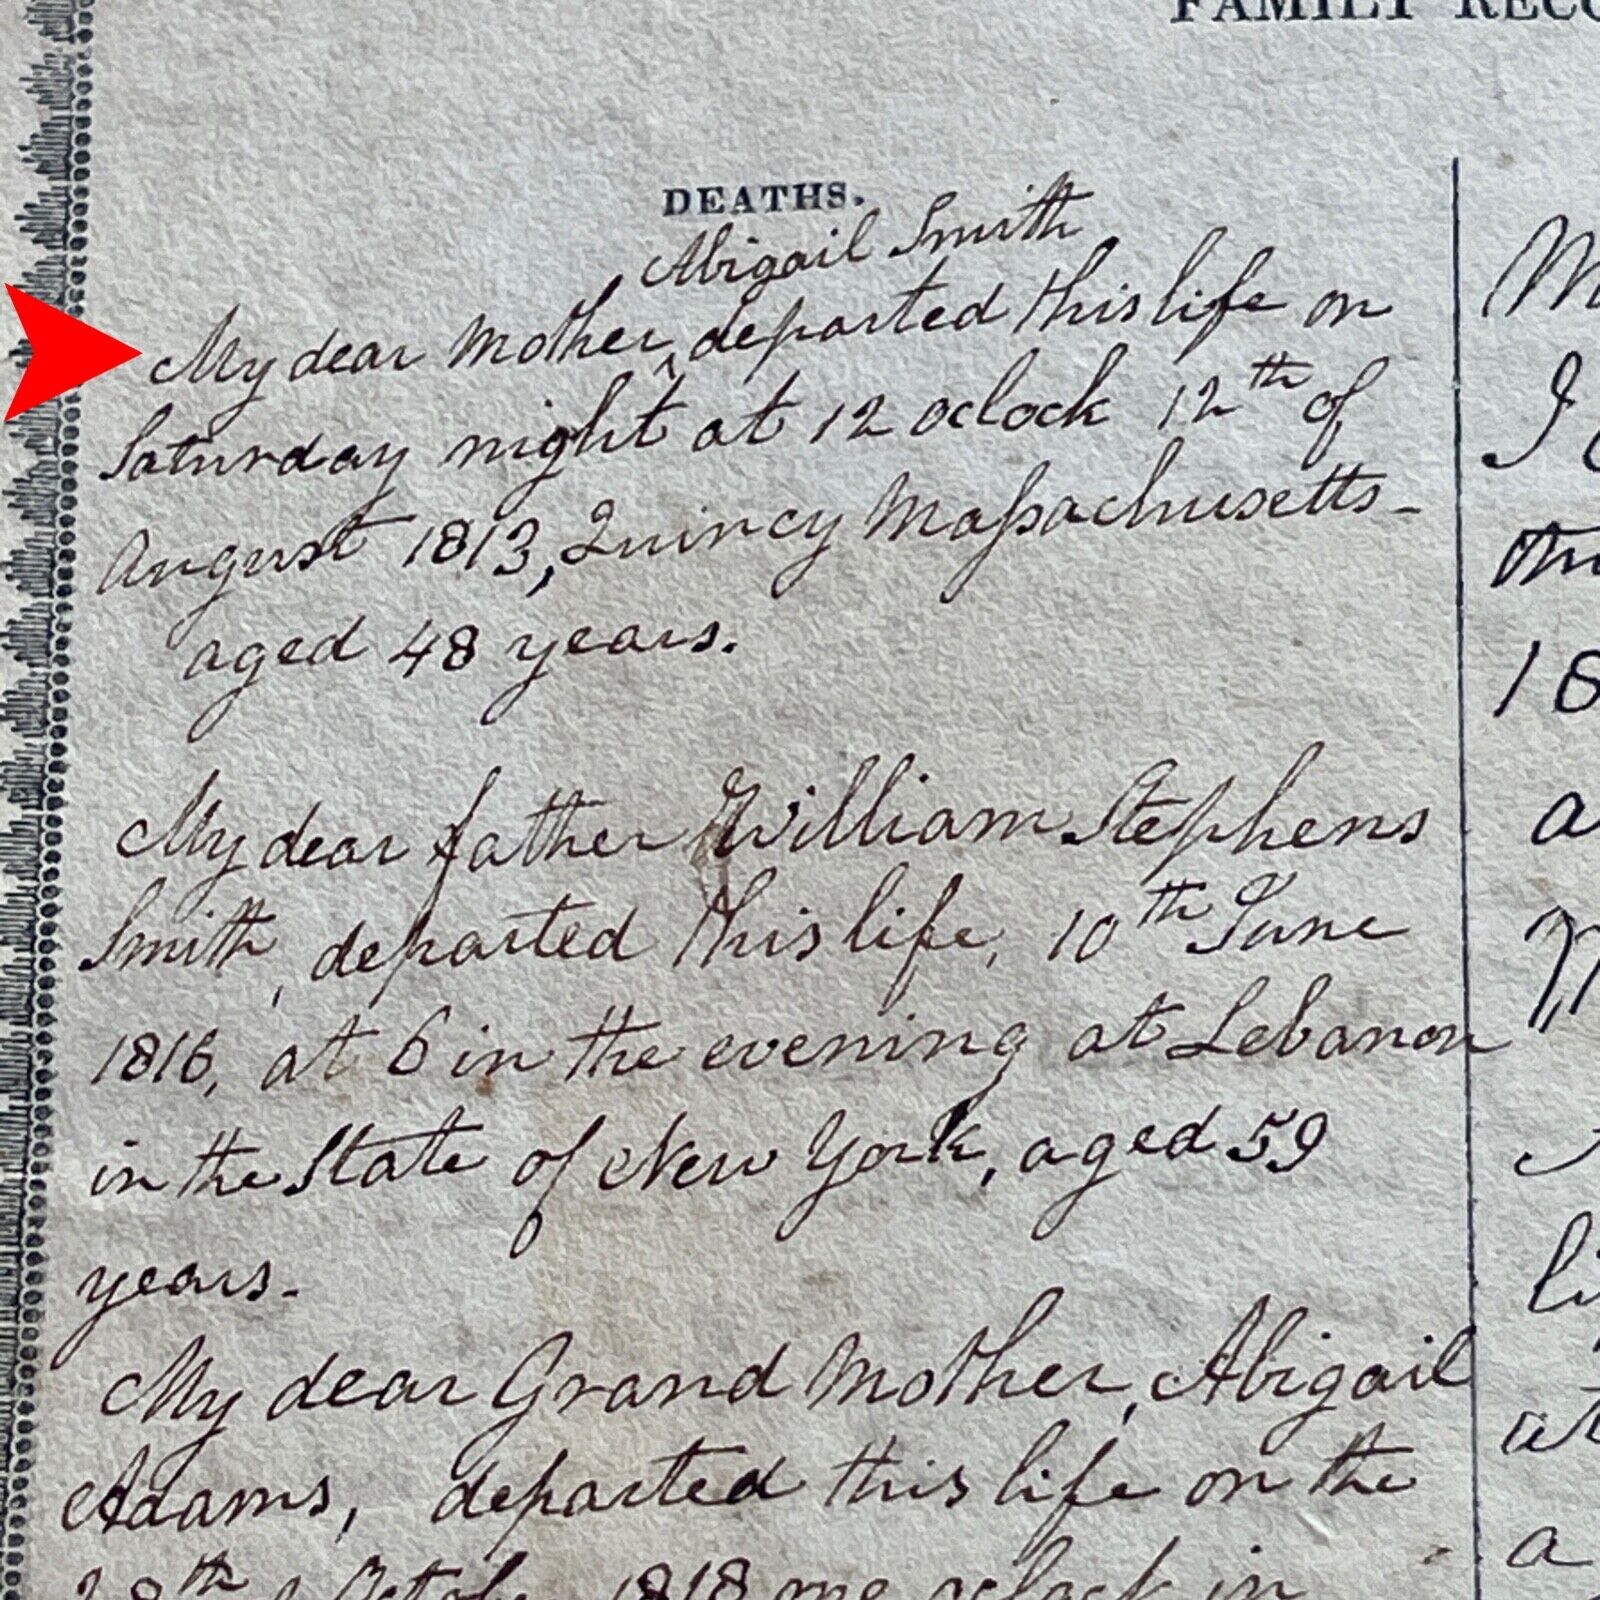 FAMILY RECO
DEATHS.
Abigail Smith
My dear Mother ^ departed this life on
Saturday night at 12 oclock 12th of
August 1813, Quincy Maſsachusetts-
aged 48 years.
My dear father William Stephens
Smith, departed this life, 10th June
1816, at 6 in the evening at Lebanon
in the State of New York, aged 59
years-
My dear Grand Mother, Abigail
Adams, departed this life on the
28th of October 1818 one oclock in
M
I
th
18
a
li
at
a